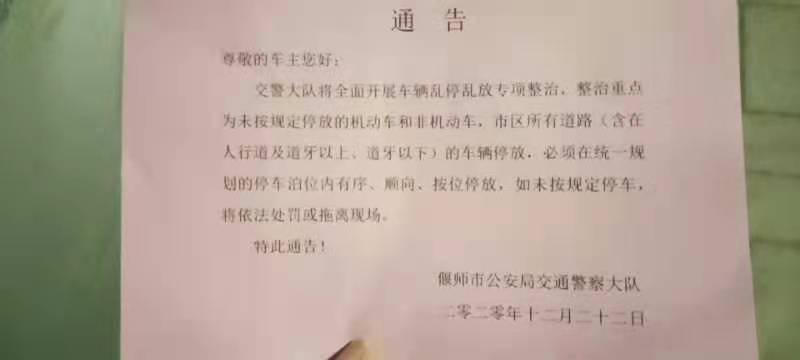 通 告
尊敬的车主您好：
交警大队将全面开展车辆乱停乱放专项整治，整治重点
为未按规定停放的机动车和非机动车，市区所有道路（含在
人行道及道牙以上、道牙以下）的车辆停放，必须在统一规
划的停车泊位内有序、顺向、按位停放，如未按规定停车，
将依法处罚或拖离现场。
特此通告！
偃师市公安局交通警察大队
二零二零年十二月二十二日